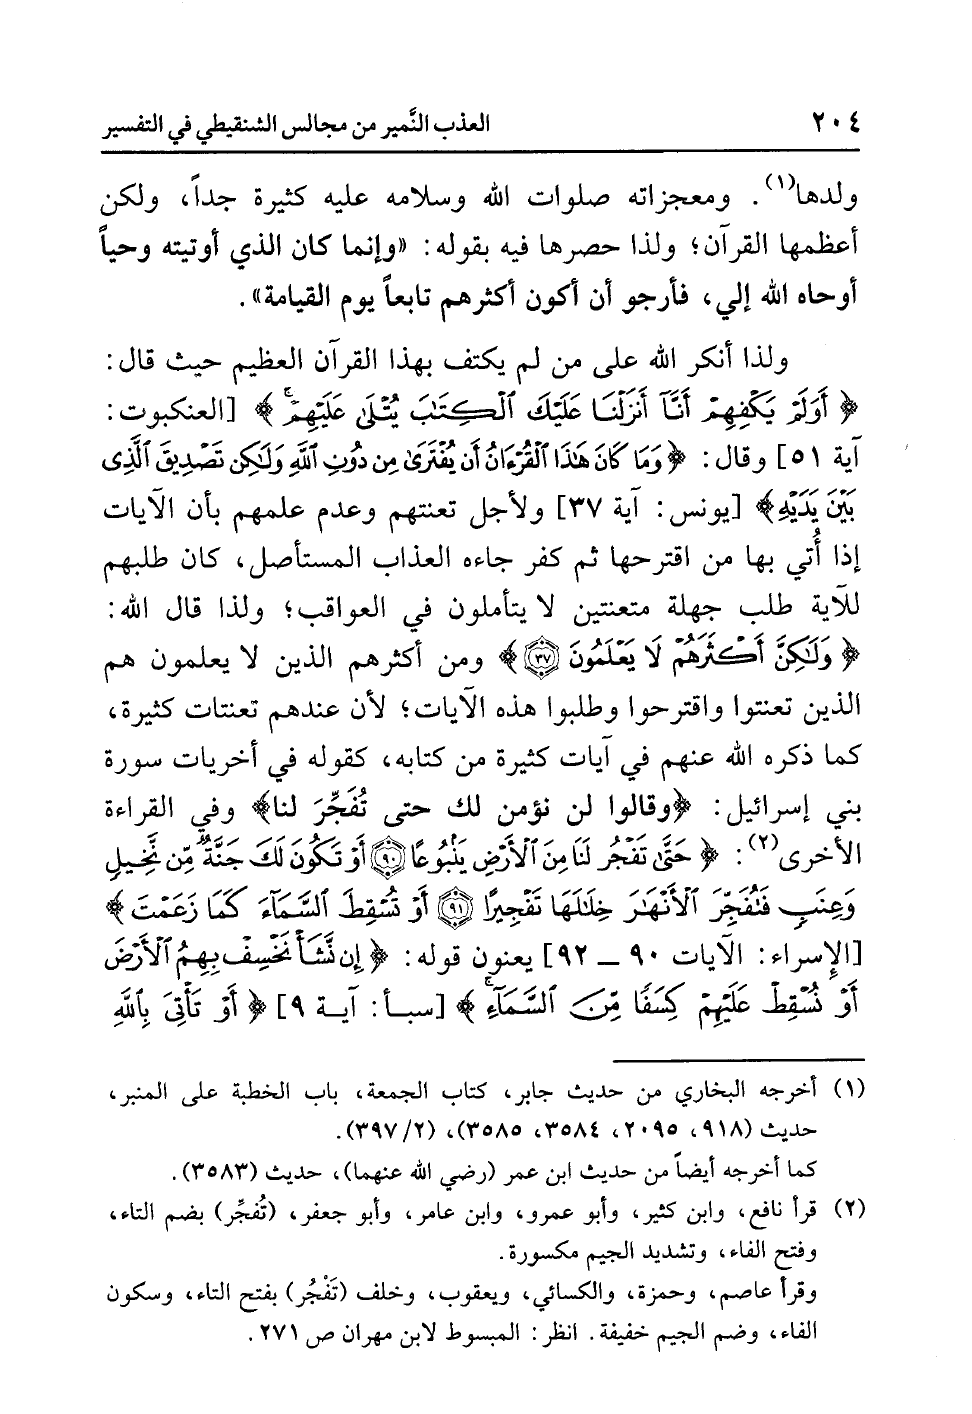 ٢٠٤ العذب النَّمير من مجالس الشنقيطي في التفسير
ولدها(١). ومعجزاته صلوات الله وسلامه عليه كثيرة جداً، ولكن
أعظمها القرآن؛ ولذا حصرها فيه بقوله: «وإنما كان الذي أوتيته وحياً
أوحاه الله إلي، فأرجو أن أكون أكثرهم تابعاً يوم القيامة».
ولذا أنكر الله على من لم يكتف بهذا القرآن العظيم حيث قال:
﴿أَوَلَمْ يَكْفِهِمْ أَنَّآ أَنزَلْنَا عَلَيْكَ ٱلْكِتَٰبَ يُتْلَىٰ عَلَيْهِمْ ۚ﴾ [العنكبوت:
آية ٥١] وقال: ﴿وَمَا كَانَ هَٰذَا ٱلْقُرْءَانُ أَن يُفْتَرَىٰ مِن دُونِ ٱللَّهِ وَلَٰكِن تَصْدِيقَ ٱلَّذِى
بَيْنَ يَدَيْهِ﴾ [يونس: آية ٣٧] ولأجل تعنتهم وعدم علمهم بأن الآيات
إذا أُتي بها من اقترحها ثم كفر جاءه العذاب المستأصل، كان طلبهم
للآية طلب جهلة متعنتين لا يتأملون في العواقب؛ ولذا قال الله:
﴿وَلَٰكِنَّ أَكْثَرَهُمْ لَا يَعْلَمُونَ ٣٧﴾ ومن أكثرهم الذين لا يعلمون هم
الذين تعنتوا واقترحوا وطلبوا هذه الآيات؛ لأن عندهم تعنتات كثيرة،
كما ذكره الله عنهم في آيات كثيرة من كتابه، كقوله في أخريات سورة
بني إسرائيل: ﴿وقالوا لن نؤمن لك حتى تُفَجِّرَ لنا﴾ وفي القراءة
الأخرى(٢): ﴿حَتَّىٰ تَفْجُرَ لَنَا مِنَ ٱلْأَرْضِ يَنۢبُوعًا ٩٠ أَوْ تَكُونَ لَكَ جَنَّةٌ مِّن نَّخِيلٍ
وَعِنَبٍ فَتُفَجِّرَ ٱلْأَنْهَٰرَ خِلَٰلَهَا تَفْجِيرًا ٩١ أَوْ تُسْقِطَ ٱلسَّمَآءَ كَمَا زَعَمْتَ﴾
[الإسراء: الآيات ٩٠ ــ ٩٢] يعنون قوله: ﴿إِن نَّشَأْ نَخْسِفْ بِهِمُ ٱلْأَرْضَ
أَوْ نُسْقِطْ عَلَيْهِمْ كِسَفًا مِّنَ ٱلسَّمَآءِ ۚ﴾ [سبأ: آية ٩] ﴿أَوْ تَأْتِىَ بِٱللَّهِ
(١) أخرجه البخاري من حديث جابر، كتاب الجمعة، باب الخطبة على المنبر،
حديث (٩١٨، ٢٠٩٥، ٣٥٨٤، ٣٥٨٥)، (٢/٣٩٧).
كما أخرجه أيضاً من حديث ابن عمر (رضي الله عنهما)، حديث (٣٥٨٣).
(٢) قرأ نافع، وابن كثير، وأبو عمرو، وابن عامر، وأبو جعفر، (تُفَجِّر) بضم التاء،
وفتح الفاء، وتشديد الجيم مكسورة.
وقرأ عاصم، وحمزة، والكسائي، ويعقوب، وخلف (تَفْجُر) بفتح التاء، وسكون
الفاء، وضم الجيم خفيفة. انظر: المبسوط لابن مهران ص ٢٧١.